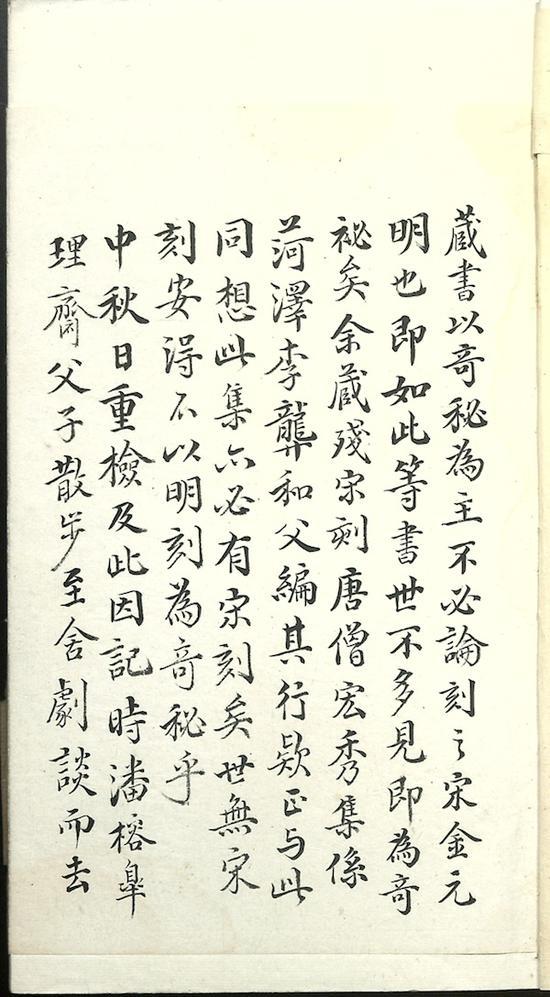 蔵書以奇秘為主不必論刻之宋金元
明也即如此等書世不多見即為奇
袐矣余蔵殘宋刻唐僧宏秀集係
菏澤李龏和父編其行欵正与此
同想此集亦必有宋刻矣世無宋
刻安淂不以明刻為奇秘乎
中秋日重檢及此因記時潘榕臯
理齋父子散步至舍劇談而去